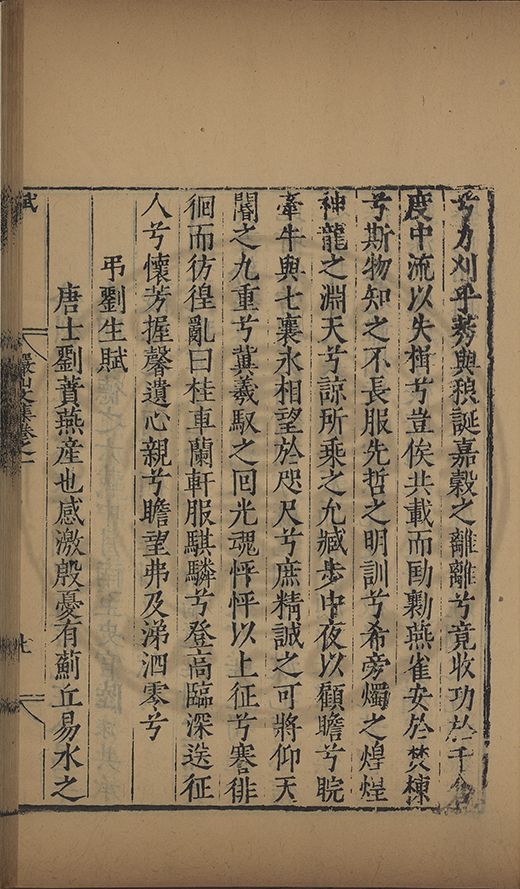 兮力刈乎莠與稂誕嘉穀之離離兮竟收功於千倉
度中流以失楫兮豈俟共載而勖勷燕雀安於焚棟
兮斯物知之不長服先哲之明訓兮希旁燭之煌煌
神龍之淵天兮諒所乘之允臧步中夜以顧瞻兮睆
牽牛與七襄水相望於咫尺兮庶精誠之可將仰天
閽之九重兮冀羲馭之回光魂怦怦以上征兮蹇徘
徊而彷徨亂曰桂車蘭軒服騏驎兮登高臨深送征
人兮懷芳握馨遺心親兮瞻望弗及涕泗零兮
弔劉生賦
唐士劉蕡燕產也感激殷憂有薊丘易水之
賦
儼山文集卷之一
七